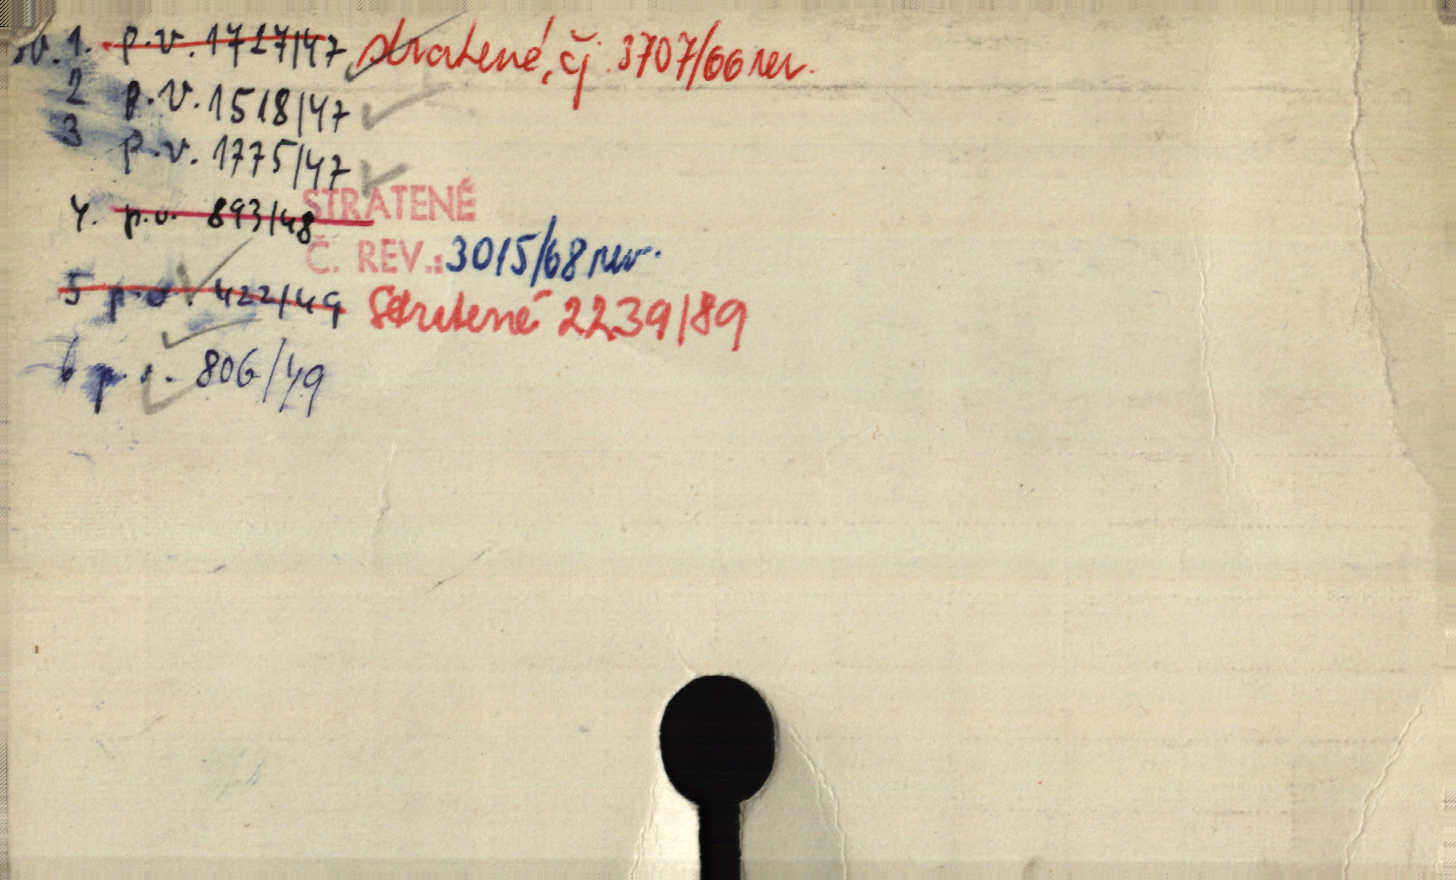 sv. 1. p.v. 1727/47 stratené, čj. 3707/66 rev.
2 p.v. 1518/47
3 p.v. 1775/47
STRATENÉ
4. p.v. 893/48
Č. REV.: 3015/68 rev.
5 p.v. 422/49 Stratené 2239/89
6 p.v. 806/49